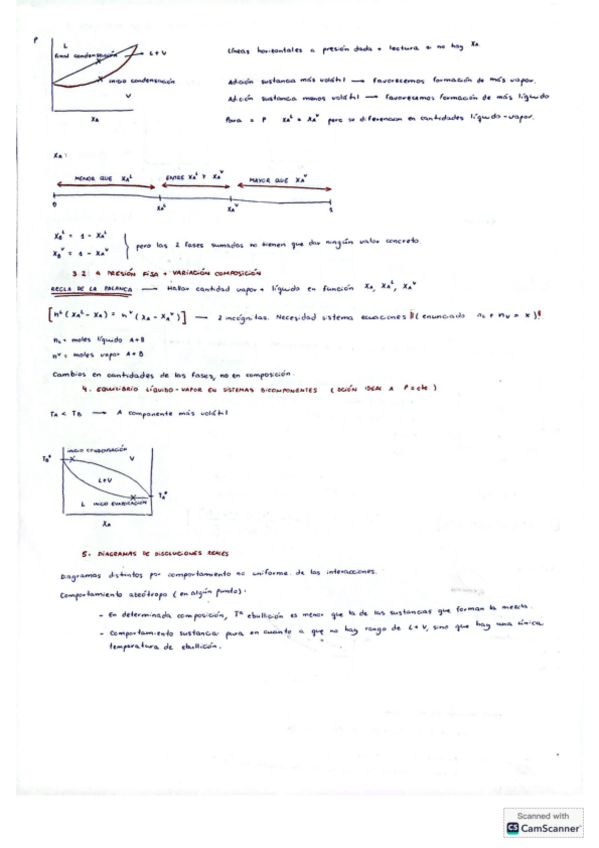 P
L
final condensación
L+V
inicio condensación
V
XA
Líneas horizontales a presión dada + lectura si no hay XA
Adición sustancia más volátil → favorecemos formación de más vapor.
Adición sustancia menos volátil → favorecemos formación de más líquido
Para = P XA^L = XA^V pero se diferencian en cantidades líquido-vapor.
XA:
MENOR QUE XA^L ENTRE XA^L Y XA^V MAYOR QUE XA^V
0 XA^L XA^V 1
XB^L = 1 - XA^L
XB^V = 1 - XA^V
pero las 2 fases sumadas no tienen que dar ningún valor concreto.
3.2 A PRESIÓN FIJA + VARIACIÓN COMPOSICIÓN
REGLA DE LA PALANCA → Hallar cantidad vapor + líquido en función XA, XA^L, XA^V
[n^L (XA^L - XA) = n^V (XA - XA^V)] → 2 incógnitas. Necesidad sistema ecuaciones !(enunciado nL + nV = x)!
nL = moles líquido A+B
nV = moles vapor A+B
Cambios en cantidades de las fases, no en composición.
4. EQUILIBRIO LÍQUIDO-VAPOR EN SISTEMAS BICOMPONENTES (DCIÓN IDEAL A P=cte.)
TA < TB → A componente más volátil
INICIO CONDENSACIÓN
TB*
V
L+V
L INICIO EVAPORACIÓN
TA*
XA
5. DIAGRAMAS DE DISOLUCIONES REALES
Diagramas distintos por comportamiento no uniforme de las interacciones.
Comportamiento azeótropo (en algún punto).
- En determinada composición, Tª ebullición es menor que la de las sustancias que forman la mezcla.
- Comportamiento sustancia pura en cuanto a que no hay rango de L+V, sino que hay una única
temperatura de ebullición.
Scanned with
CS CamScanner